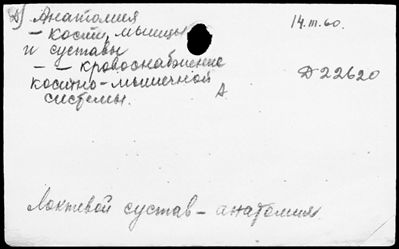 Д) Анатомия
14.III.60.
– кости, мышцы
и суставы
– – кровоснабжение
костно-мышечной
системы.
Д.
Д 22620
Локтевой сустав – анатомия